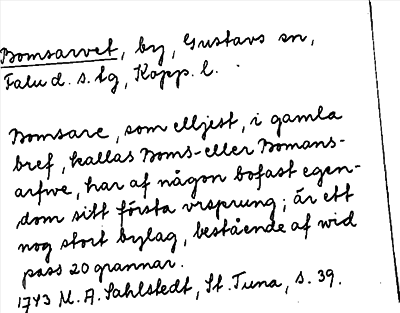 Bomsarvet, by, Gustavs sn,
Falu d. s. tg, Kopp. l.
Bomsare, som elljest, i gamla
bref, kallas Boms- eller Bomans-
arfwe, har af någon bofast egen-
dom sitt första ursprung; är ett
nog stort bylag, bestående af wid
pass 20 grannar.
1743 M. A. Sahlstedt, St. Tuna, s. 39.